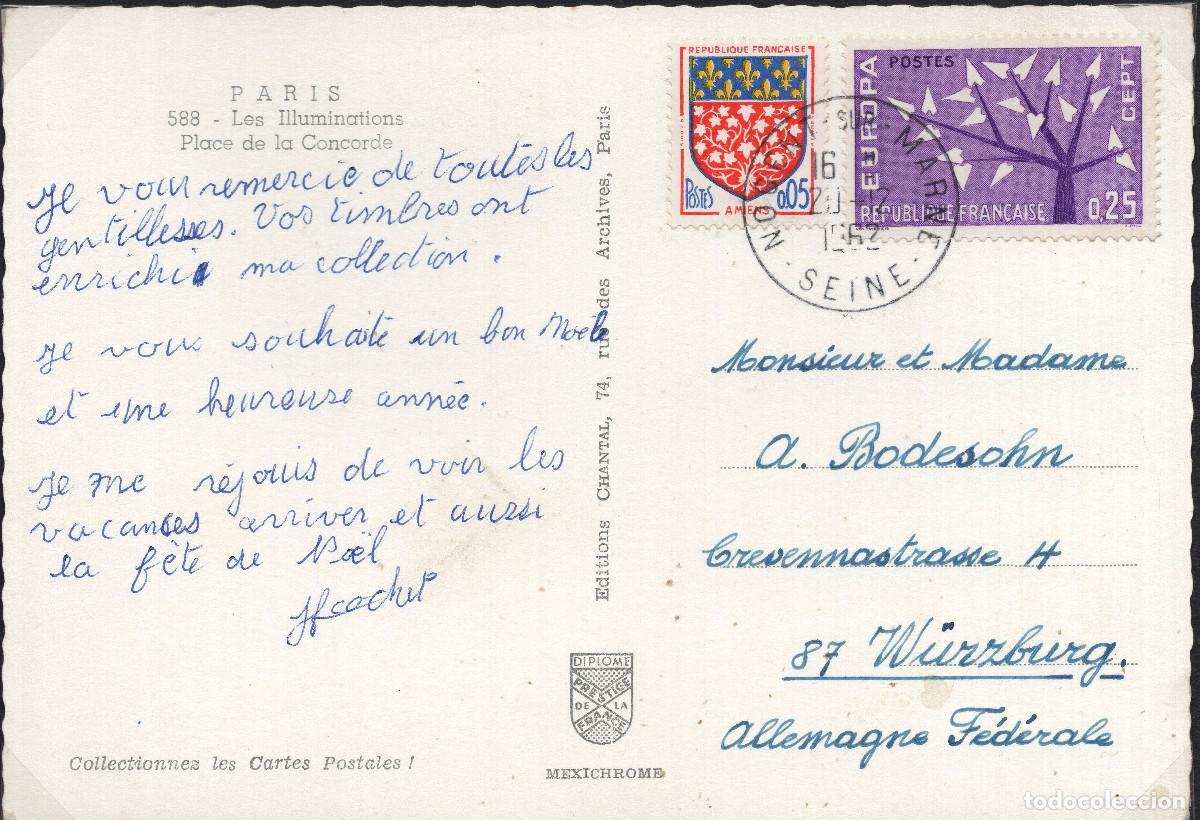 PARIS
588 - Les Illuminations
Place de la Concorde
Je vous remercie de toutes les
gentillesses. Vos timbres ont
enrichi ma collection.
Je vous souhaite un bon Noël
et une heureuse année.
Je me réjouis de voir les
vacances arriver et aussi
la fête de Noël
JFcochet
Collectionnez les Cartes Postales !
Editions CHANTAL, 74, rue des Archives, Paris
DIPLOME
PRESTIGE
DE LA
FRANCE
MEXICHROME
REPUBLIQUE FRANÇAISE
POSTES 0,05
AMIENS
EUROPA
POSTES
CEPT
REPUBLIQUE FRANÇAISE 0,25
NOGENT-SUR-MARNE
16 H
20-12
1962
- SEINE -
Monsieur et Madame
A. Bodesohn
Crevennastrasse 4
87 Würzburg.
Allemagne Fédérale
todocoleccion